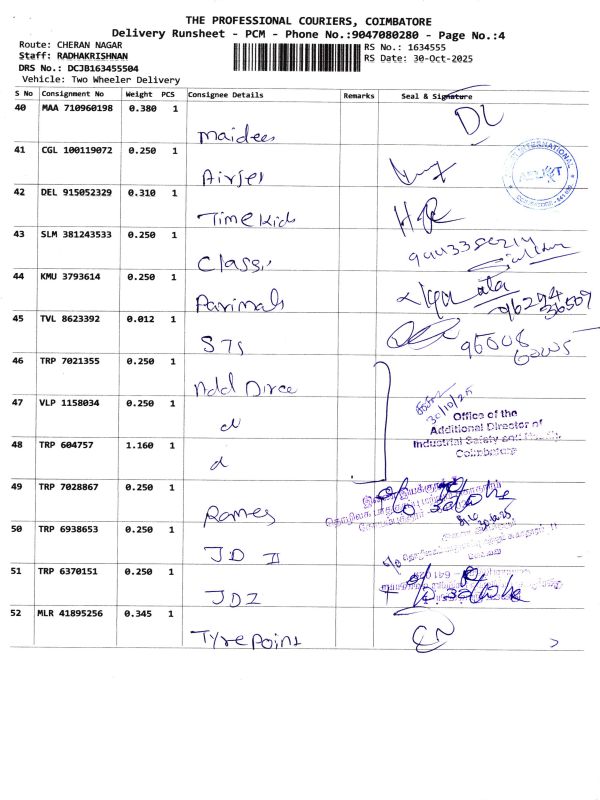 THE PROFESSIONAL COURIERS, COIMBATORE
Delivery Runsheet - PCM - Phone No.:9047080280 - Page No.:4
Route: CHERAN NAGAR
RS No.: 1634555
Staff: RADHAKRISHNAN
RS Date: 30-Oct-2025
DRS No.: DCJB163455504
Vehicle: Two Wheeler Delivery
S No Consignment No Weight PCS Consignee Details Remarks Seal & Signature
40 MAA 710960198 0.380 1
Maidees
41 CGL 100119072 0.250 1
INTERNATIONAL
Airjet
42 DEL 915052329 0.310 1
Time Kids
43 SLM 381243533 0.250 1
Classi
44 KMU 3793614 0.250 1
Parimals
96294
36507
45 TVL 8623392 0.012 1
STS
95008
46 TRP 7021355 0.250 1
Add Direc
30/10/25
47 VLP 1158034 0.250 1
Office of the
Additional Director of
Industrial Safety and Health,
Coimbatore
48 TRP 604757 1.160 1
49 TRP 7028867 0.250 1
Rames
50 TRP 6938653 0.250 1
JD II
51 TRP 6370151 0.250 1
JD I
52 MLR 41895256 0.345 1
Tyre Point